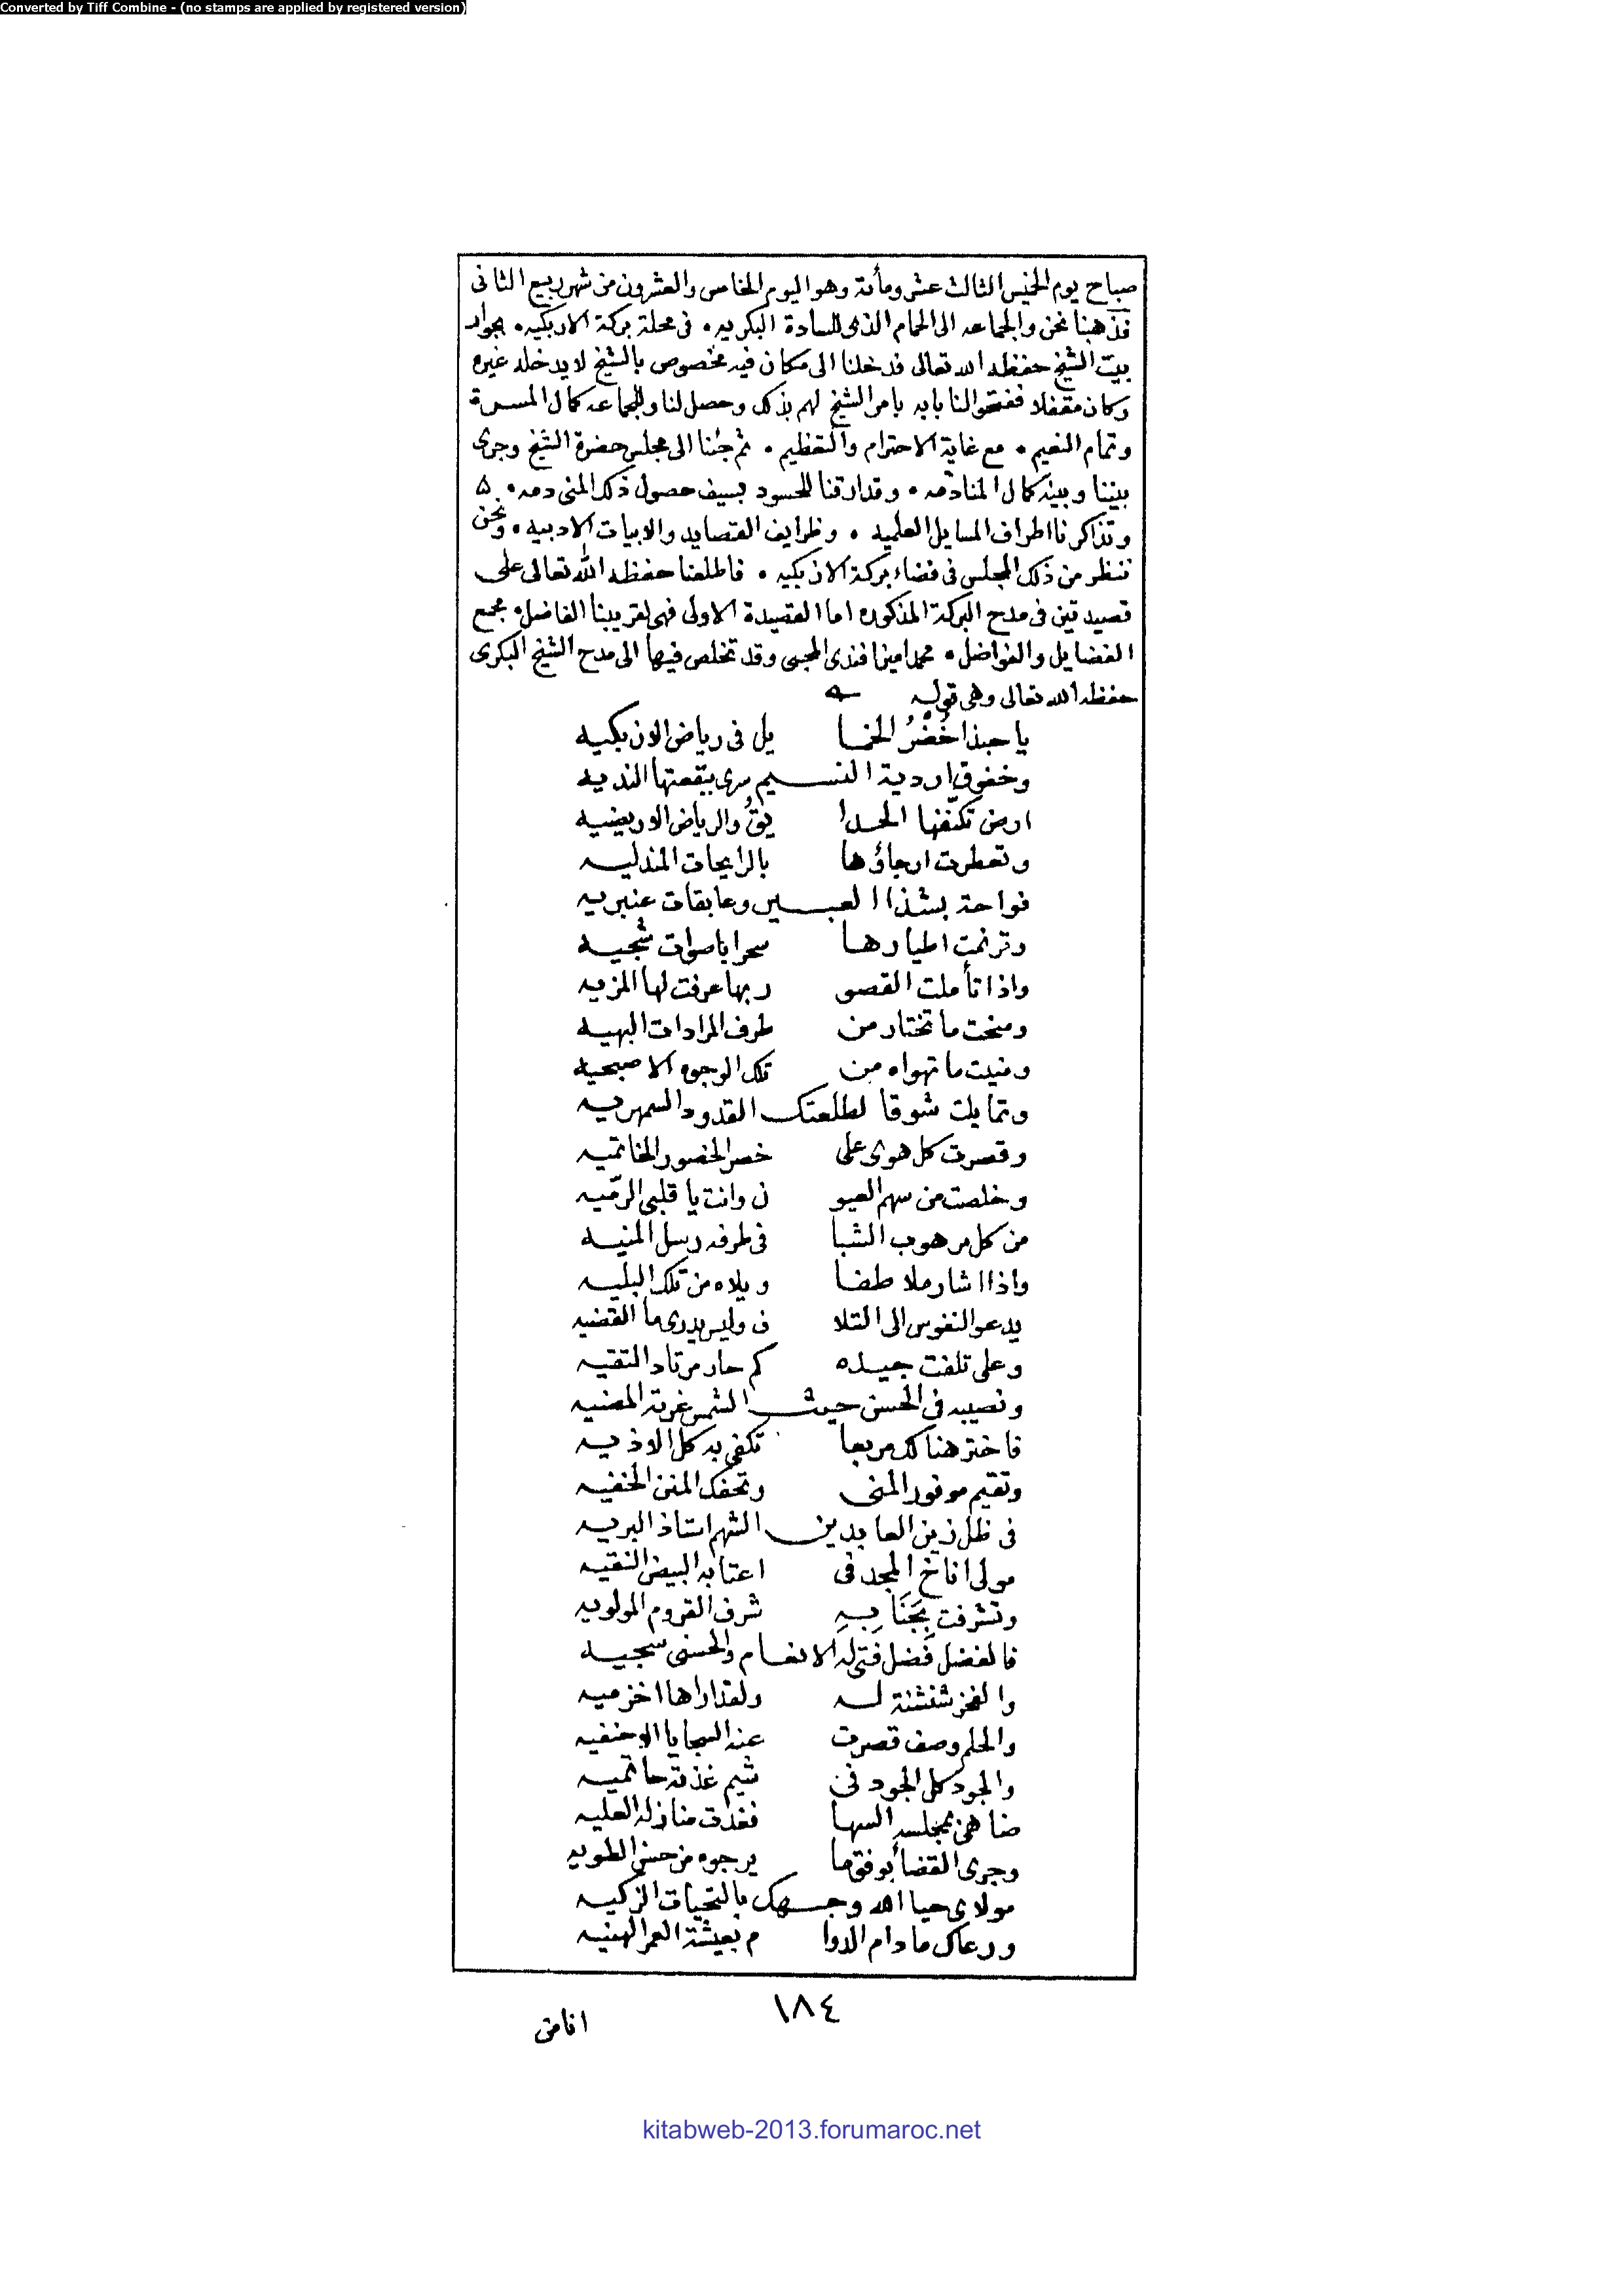 Converted by Tiff Combine - (no stamps are applied by registered version)
صباح يوم الخميس الثالث عشر ومأتة وهو اليوم الخامس والعشرون من شهر ربيع الثانى
فذهبنا نحن والجماعه الى الحمام الذى للسادة البكريه . فى محلة بركة الازبكيه . بجوار
بيت الشيخ حفظه الله تعالى فدخلنا الى مكان فيه مخصوص بالشيخ لا يدخله غيره
وكان مقفلا ففتحوا لنا بابه بامر الشيخ لهم بذلك وحصل لنا وللجماعه كمال المسرة
وتمام النعيم . مع غاية الاحترام والتعظيم . ثم جئنا الى مجلس حضرة الشيخ وجرى
بيننا وبينه كمال المنادمه . وقد ارقنا للحسود بسيف حصول ذلك المنى دمه . ه
وتذاكرنا اطراف المسايل العلميه . وظرايف القصايد والابيات الادبيه . ونحن
ننظر من ذلك المجلس فى فضاء بركة الازبكيه . فاطلعنا حفظه الله تعالى على
قصيدتين فى مدح البركة المذكوره اما القصيدة الاولى فهى لقريبنا الفاضل . مجمع
الفضايل والفواضل . محمد امين افندى المحبى وقد تخلص فيها الى مدح الشيخ البكرى
حفظه الله تعالى وهى قوله
يا حبذا خُضْرُ الخما يل فى رياض الازبكيه
وخفوق اردية النسيم سرى ببقعتها النديه
ارض تكنّفها الحدا يقُ والرياض الاريضيه
وتعطرت ارجاؤها بالرايحات المندليه
فواحة بشذا العبير وعابقات عنبريه
وترنمت اطيارها سحرا باصوات شجيه
واذا تأملت القصو ر بها عرفت لها المزيه
ومنحت ما تختار من طرف المرادات البهيه
ومنيت ما تهواه من تلك الوجوه الاصبحيه
وتمايلت شوقا لطلعتك القدود السمهريه
وقصرت كل هوى على خصر الخصور الخاتميه
وخلصت من سهم العيو ن وانت يا قلبى الرمّيه
من كل مرهوب الشبا فى طرفه رسل المنيه
واذا اشار ملاطفا ويلاه من تلك البليه
يدعو النفوس الى التلا ف وليس يدرى ما القضيه
وعلى تلفت جيده كم حار مرتاد التقيه
ونصيبه فى الحسن حيث الشمس غرته المضيه
فاختر هنالك مربعا تكفى به كل الاذيه
وتقيم موفور المنى وتحفك المنن الخفيه
فى ظل زين العابدين الشهم استاذ البريه
مولى اناخ المجد فى اعتابه البيض النقيه
وتشرفت بِجَنَابِهِ شرف القروم المولويه
فالفضل فضل فتى له الانعام والحسنى سجيه
والفخر شنشنة له ولقد اراها اخزميه
والحلم وصف قصرت عنه السجايا الاحنفيه
والجود كل الجود فى شيم غذته حاتميه
ضاهى بمجلسه السها فغدت منازله العليه
وجرى القضا بوفق ما يرجوه من حسن الطويه
مولاى حيا الله وجهك بالتحيات الزكيه
ورعاك ما دام الدوا م بعيشة العمر الهنيه
١٨٤
kitabweb-2013.forumaroc.net